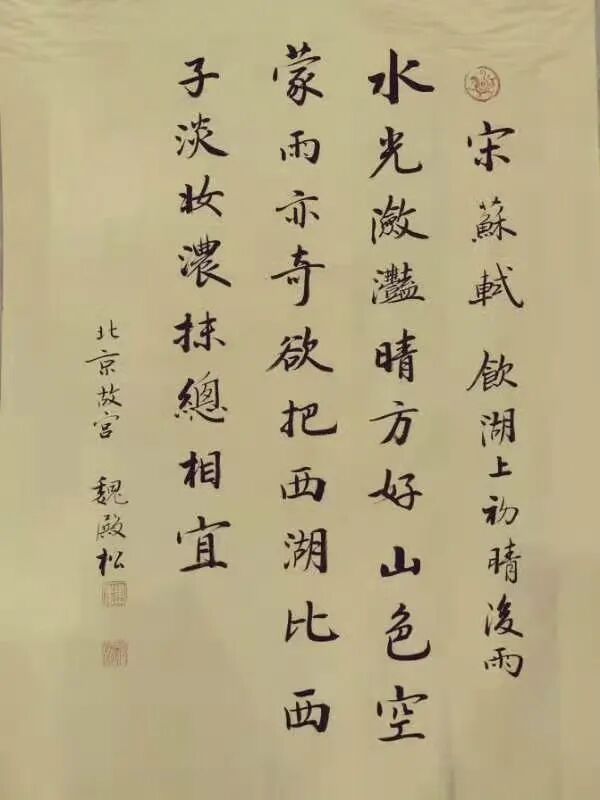 宋 蘇軾 飲湖上初晴後雨
水光瀲灩晴方好山色空
蒙雨亦奇欲把西湖比西
子淡妝濃抹總相宜
北京故宫 魏殿松